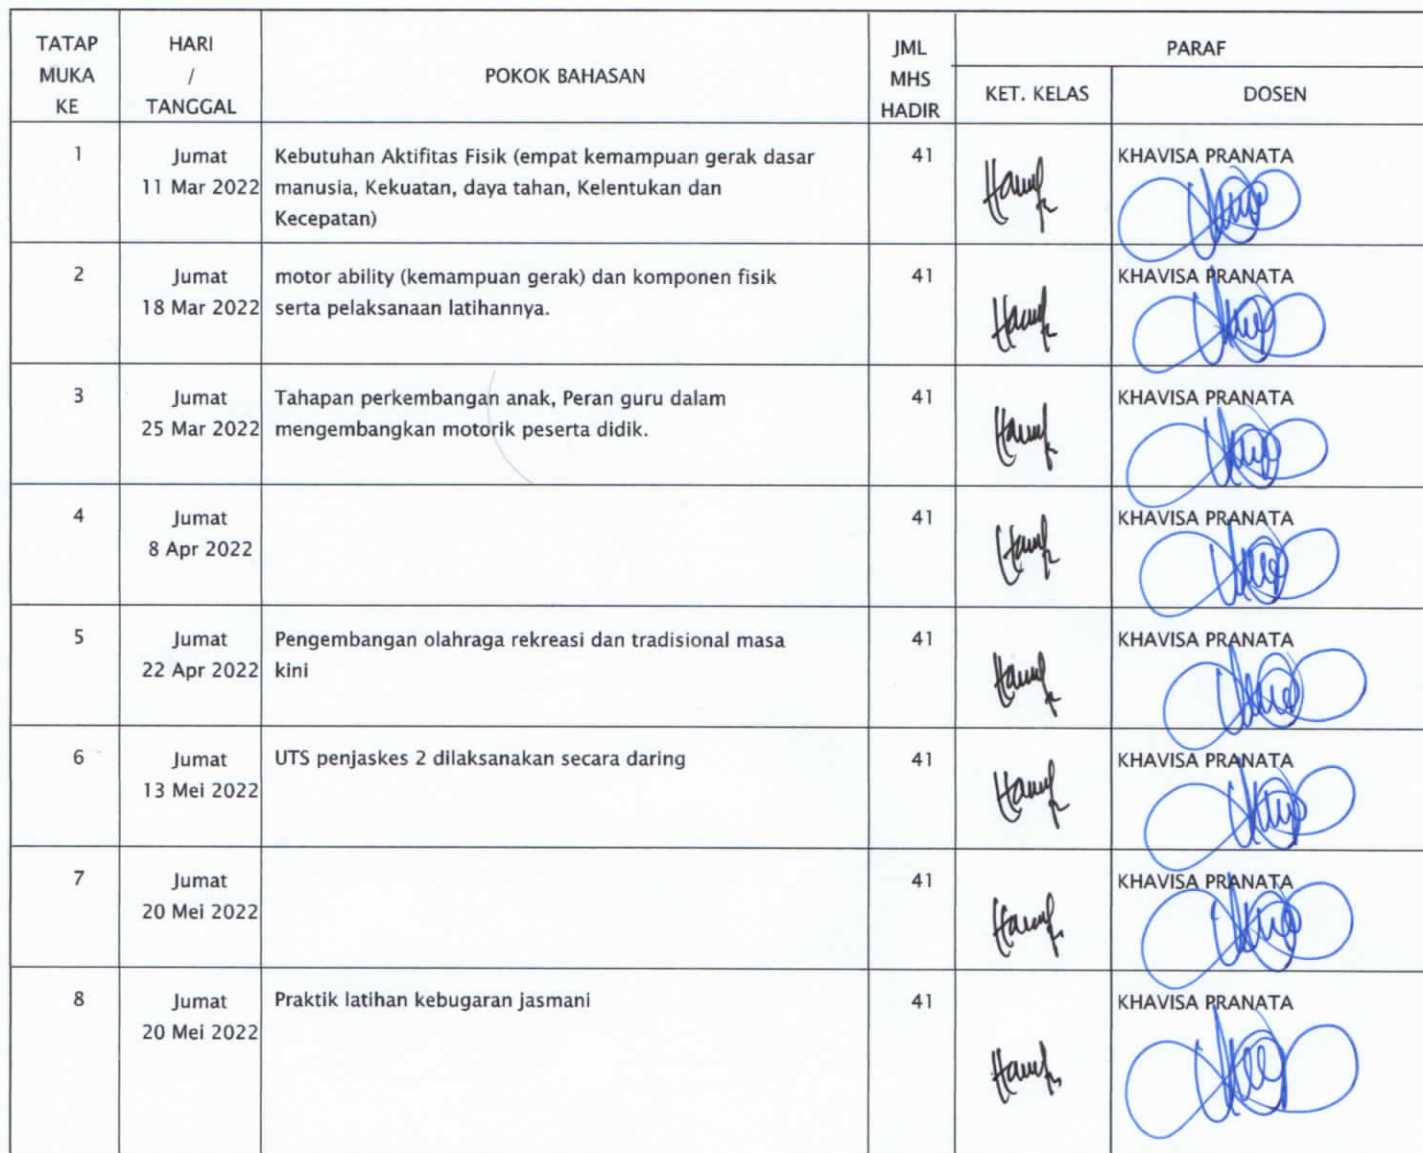 TATAP MUKA KE
HARI / TANGGAL
POKOK BAHASAN
JML MHS HADIR
PARAF
KET. KELAS
DOSEN
1
Jumat
11 Mar 2022
Kebutuhan Aktifitas Fisik (empat kemampuan gerak dasar
manusia, Kekuatan, daya tahan, Kelentukan dan
Kecepatan)
41
KHAVISA PRANATA
2
Jumat
18 Mar 2022
motor ability (kemampuan gerak) dan komponen fisik
serta pelaksanaan latihannya.
41
KHAVISA PRANATA
3
Jumat
25 Mar 2022
Tahapan perkembangan anak, Peran guru dalam
mengembangkan motorik peserta didik.
41
KHAVISA PRANATA
4
Jumat
8 Apr 2022
41
KHAVISA PRANATA
5
Jumat
22 Apr 2022
Pengembangan olahraga rekreasi dan tradisional masa
kini
41
KHAVISA PRANATA
6
Jumat
13 Mei 2022
UTS penjaskes 2 dilaksanakan secara daring
41
KHAVISA PRANATA
7
Jumat
20 Mei 2022
41
KHAVISA PRANATA
8
Jumat
20 Mei 2022
Praktik latihan kebugaran jasmani
41
KHAVISA PRANATA